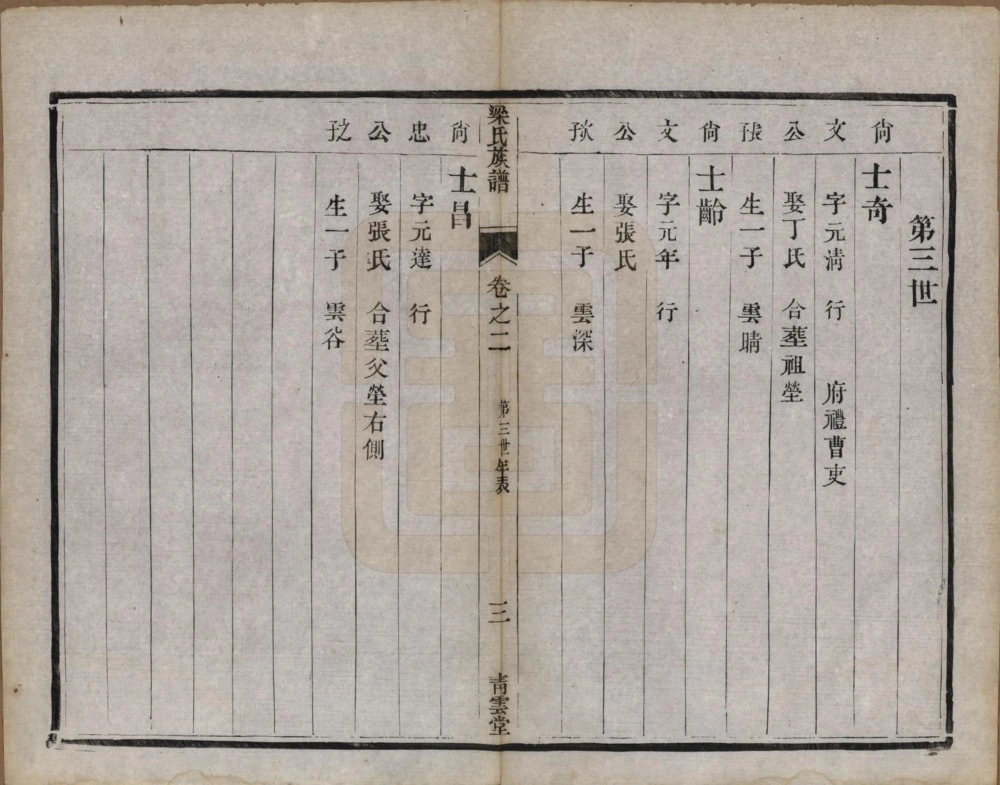 第三世
尙 士奇
文 字元淸 行 府禮曹吏
公 娶丁氏 合塟祖塋
長子 生一子 雲晴
尙 士齡
文 字元年 行
公 娶張氏
次子 生一子 雲深
梁氏族譜 卷之二 第三世年表 三 靑雲堂
尙 士昌
忠 字元達 行
公 娶張氏 合塟父塋右側
之子 生一子 雲谷